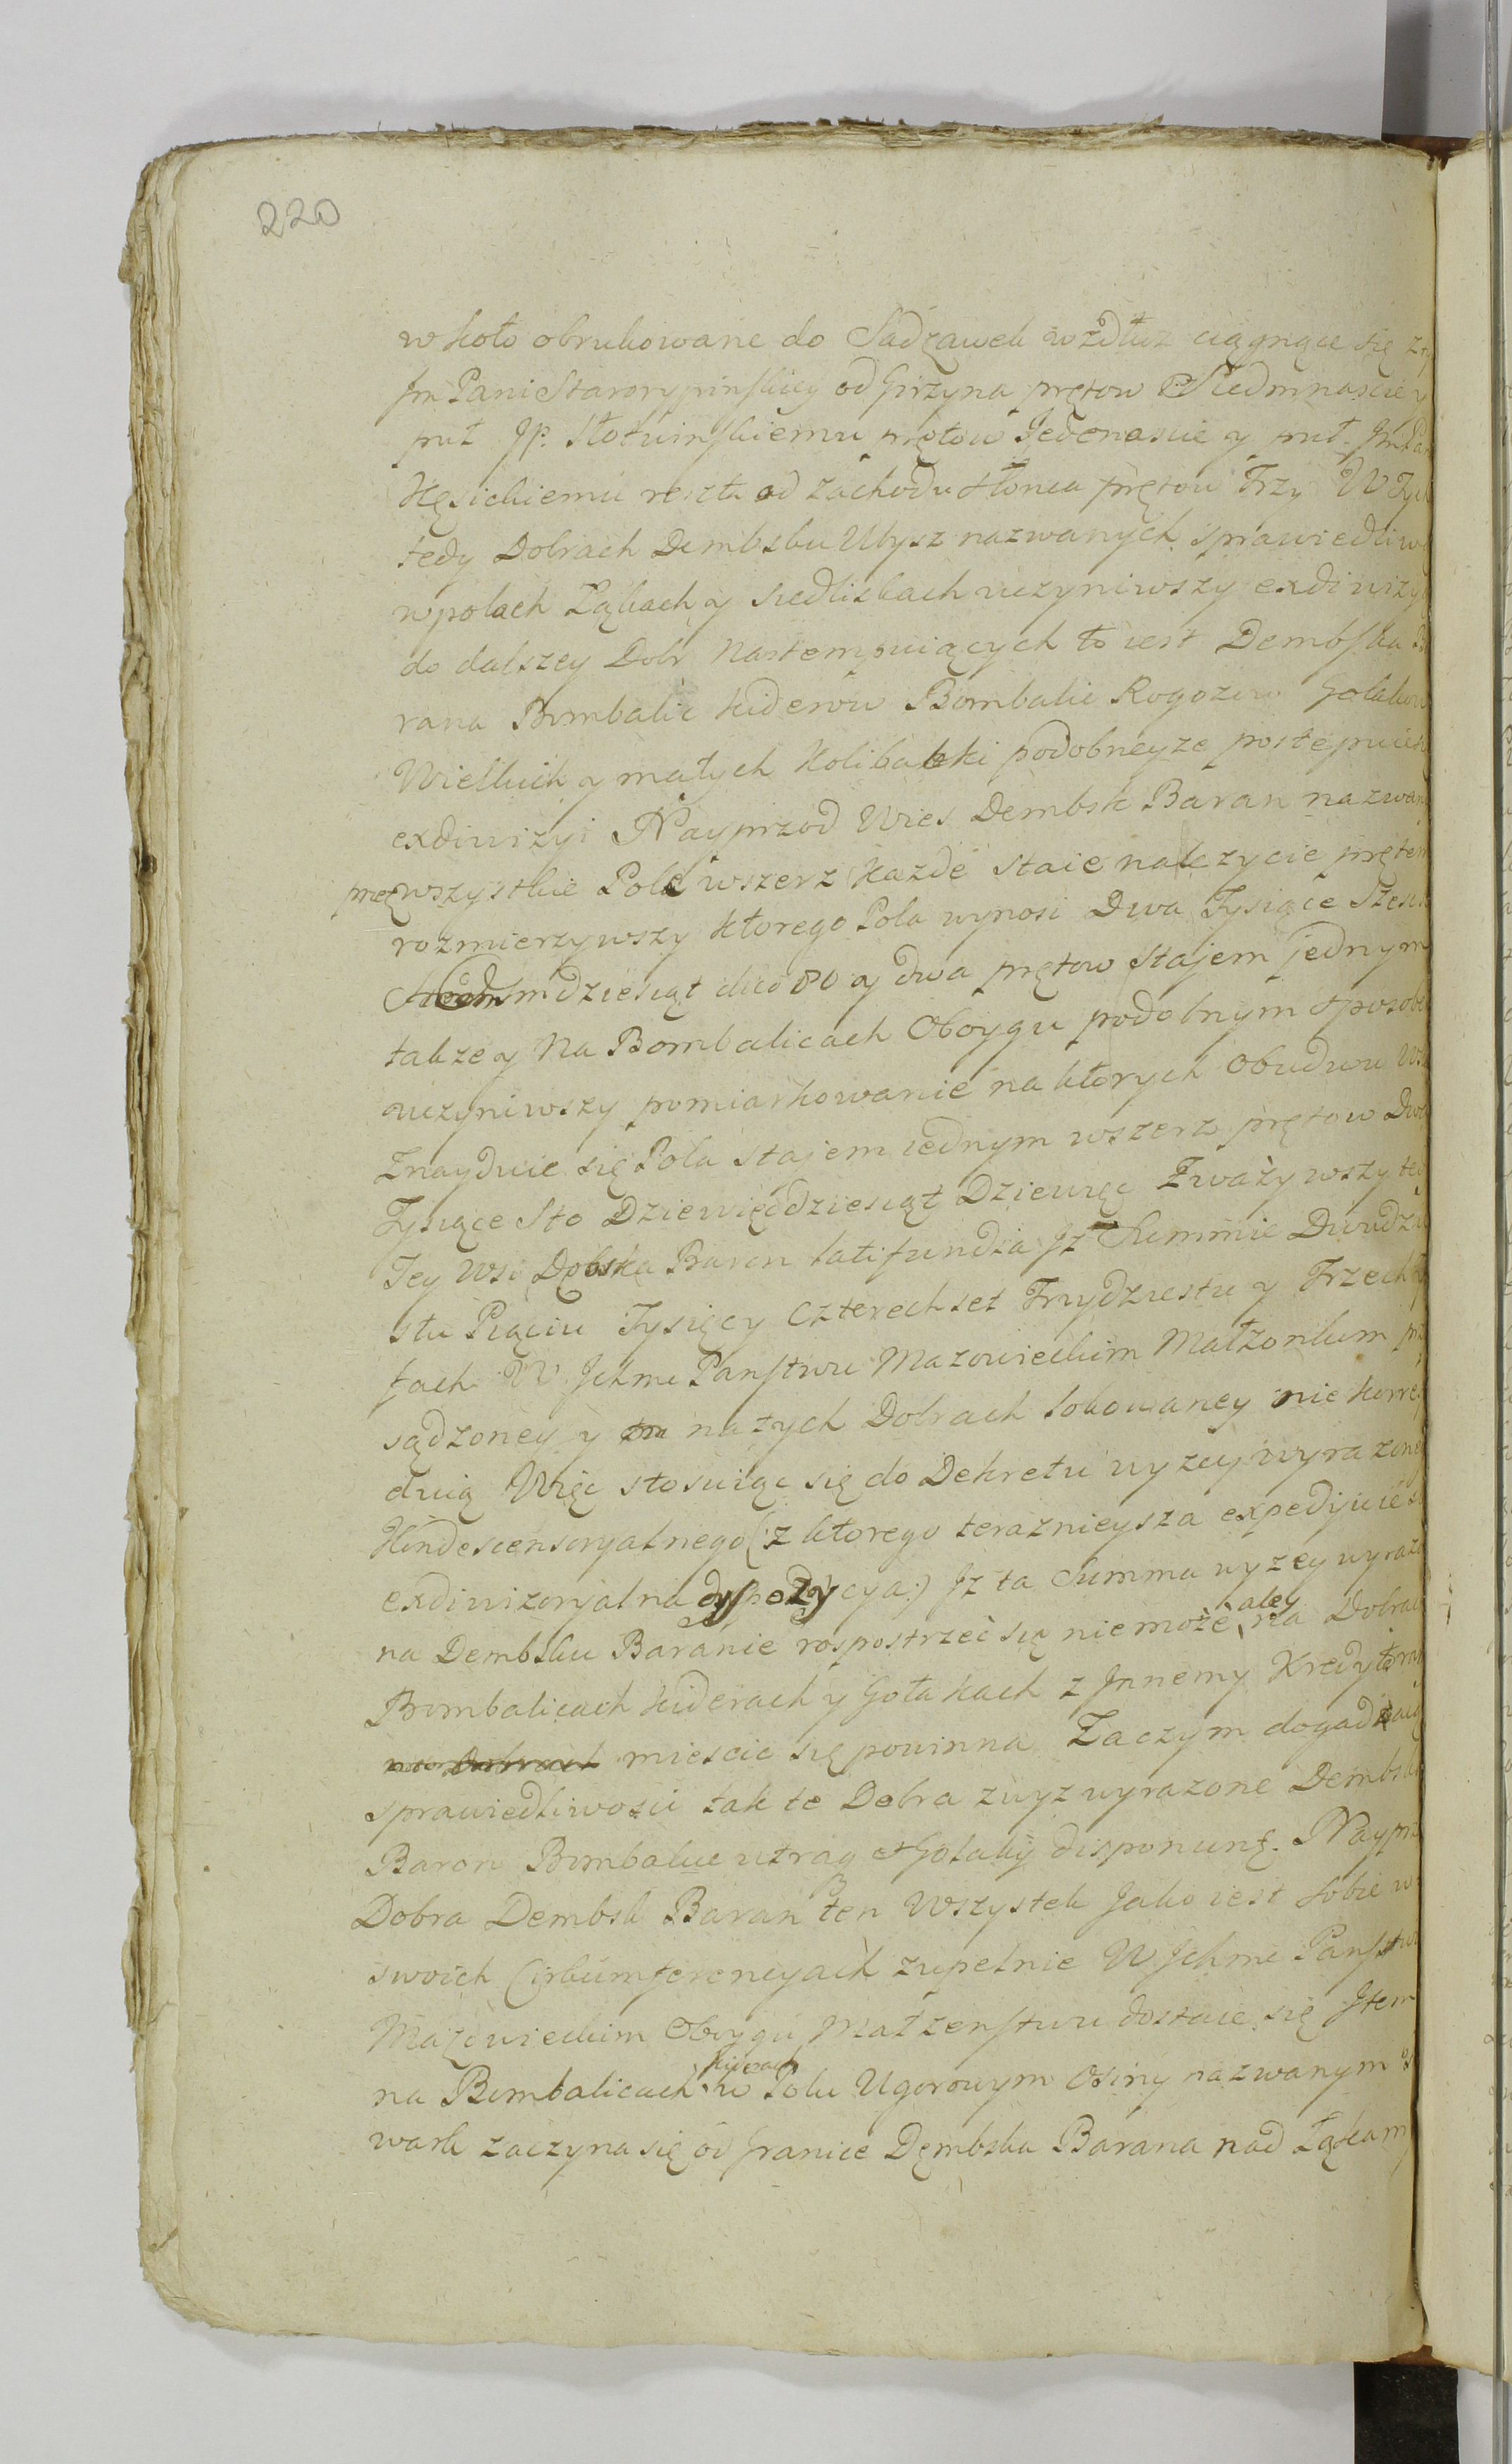 220
w koło obrukowane do Sadzawek wzdłuz ciągnące się z
Jm Pani Starorypinskiey od Girzyna prętow Siedmnascie y
puł Jp. Słotwinskiemu prętow Jedenascie y puł. Jm Pa
Kęsickiemu reszta od zachodu słonca prętow Trzy W Tych
tedy Dobrach Dembsku Ułysz nazwanych sprawiedliwą
w polach Łąkach y siedliskach uczyniwszy exdiwizyą
do dalszey Dobr Nastempuiących to iest Dembska Ba
rana Bombalic Kiderow Bombalic Rogozew Gołakow
Wielkich y małych Kolibabki podobneyze postępuiem
exdiwizyi Nayprzod Wies Dembsk Baran nazwan
wszystkie Pole wszerz Kazde staie nalezycie prętem
rozmierzywszy ktorego Pola wynosi Dwa Tysiące Szescset
Osmdziesiąt dico 80 y dwa prętow stajem jednym
takze y Na Bombalicach Oboygu podobnym sposobem
uczyniwszy pomiarkowanie na ktorych obudwu Wsi
Znayduie się Pola stajem iednym wszerz prętow Dwa
Tysiące Sto Dziewięcdziesiąt Dziewięc Zwazywszy ted
Tey Wsi Dębska Baran latifundia Jz Summie Dwudzie
stu Pięciu Tysięcy Czterechset Trzydziestu y Trzech
tach W Jchmc Panstwu Mazowieckim Małzonkom prz
sądzoney y na tych Dobrach lokowaney nie korres
duią Więc stosuiąc się do Dekretu wyzey wyrazone
Kondescensoryalnego (:z ktorego teraznieysza expedyuie s
exdiwizoryalna dyspozycya:) Jz ta Summa wyzey wyrazo
na Dembsku Baranie rospostrzec się niemoze, aley na Dobrach
Bombalicach Kiderach y Gołakach z Jnnemy Kredytoram
na Dobrach miescic się powinna Zaczym dogadzaiąc
sprawiedliwosci tak te Dobra zwyz wyrazone Dembsk
Baron Bombalice utraq et Gołaky disponunt. Nayprz
Dobra Dembsk Baran ten Wszystek Jako iest sobie w
swoich Cirkumferencyach zupełnie W Jchmc Panstwu
Mazowieckim Oboygu Małzenstwu dostaie się Jtem
na Bombalicach Kiderach w Polu Ugorowym Osiny nazwanym
wark zaczyna się od Granice Dęmbska Barana nad Łąkamy